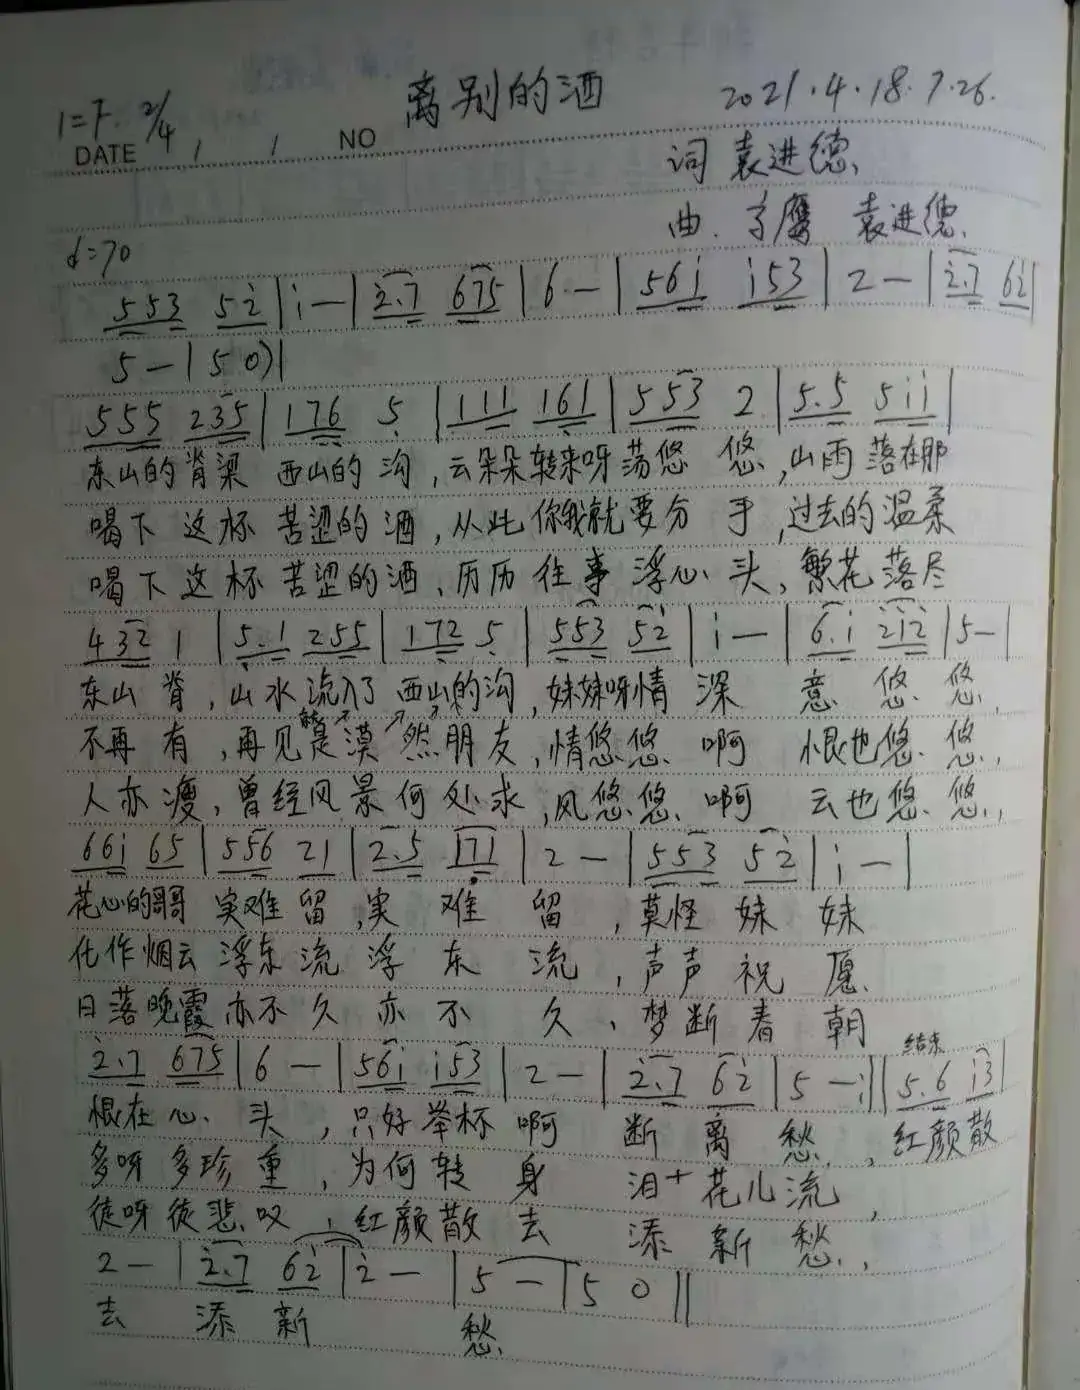 离别的酒 2021.4.18.7.26.
1=F. 2/4
DATE / / NO
词 袁进德、
曲. 袁进德、
♩=70
553 52̇ | 1̇ — | 2̇.7 675 | 6 — | 561̇ 1̇53 | 2 — | 2̇.7 62̇ |
5 — | 5 0) |
555 235 | 176̣ 5̣ | 111 16̣1 | 553 2 | 5.5 51̇1̇ |
东山的脊梁 西山的沟,云朵朵转来呀荡悠 悠,山雨落在那
喝下这杯苦涩的酒,从此你我就要分 手,过去的温柔
喝下这杯苦涩的酒、历历往事浮心头,繁花落尽
432 1 | 5̣.1 255 | 172 5̣ | 553 52̇ | 1̇ — | 6.1̇ 2̇1̇2̇ | 5 — |
东山脊,山水流入了西山的沟,妹妹呀情 深 意 悠 悠,
不再有,再见是漠然朋友,情悠悠 啊 恨也悠、悠,
人亦瘦,曾经风景何处求,风悠悠、啊 云也悠、悠,
661̇ 65 | 556 21 | 2.5 17̣1 | 2 — | 553 52̇ | 1̇ — |
花心的哥哥 实难留,实 难 留,莫怪 妹 妹
化作烟云 浮东流 浮 东 流,声声 祝 愿
日落晚霞 亦不久 亦 不 久、梦断春 朝
2̇.7 675 | 6 — | 561̇ 1̇53 | 2 — | 2̇.7 62̇ | 5 — :|| 结束 5.6 1̇3 |
恨在心、头,只好举杯 啊 断 离 愁,红颜散
多呀多珍重,为何转 身 泪+花儿流,
徒呀徒悲叹,红颜散 去 添 新 愁,
2 — | 2̇.7 62̇ | 2̇ — | 5 — | 5 0 ||
去 添 新 愁